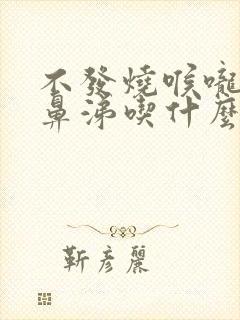 不發燒喉嚨
鼻涕喫什麼
靳彦麗